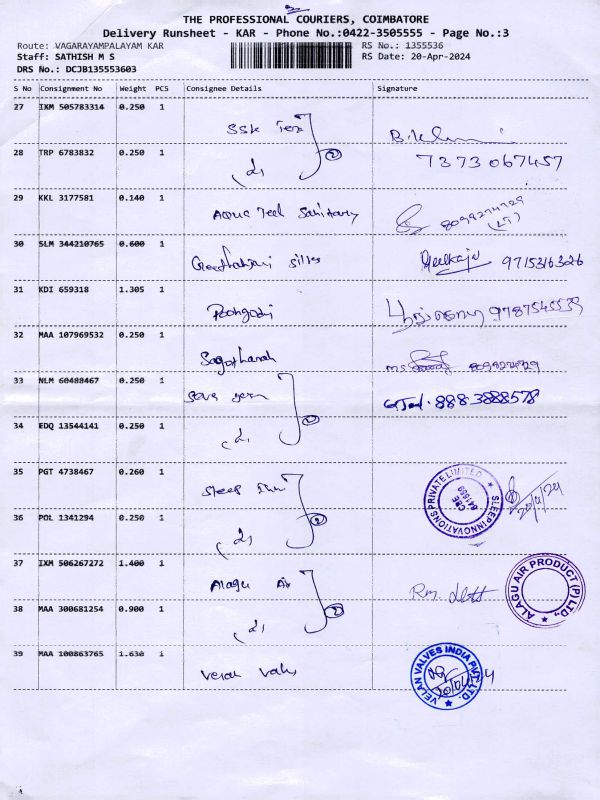 THE PROFESSIONAL COURIERS, COIMBATORE
Delivery Runsheet - KAR - Phone No.:0422-3505555 - Page No.:3
Route: VAGARAYAMPALAYAM KAR RS No.: 1355536
Staff: SATHISH M S RS Date: 20-Apr-2024
DRS No.: DCJB135553603
S No Consignment No Weight PCS Consignee Details Signature
27 IXM 505783314 0.250 1
SSK Tex
28 TRP 6783832 0.250 1 2 7373067457
29 KKL 3177581 0.140 1
Aqua Tech Sanitary 8099274729
30 SLM 344210765 0.600 1
Geethanjani silks 9715316326
31 KDI 659318 1.305 1
9787545539
32 MAA 107969532 0.250 1
33 NLM 60488467 0.250 1
888 3888578
34 EDQ 13544141 0.250 1
35 PGT 4738467 0.260 1
Sleep Inn
SLEEP INNOVATIONS PRIVATE LIMITED
CBE
641659
20/4/24
36 POL 1341294 0.250 1 2
37 IXM 506267272 1.400 1
Alagu Air
ALAGU AIR PRODUCT (P) LTD.,
38 MAA 300681254 0.900 1 2
39 MAA 100863765 1.630 1
Velan Valves
VELAN VALVES INDIA PVT. LTD.